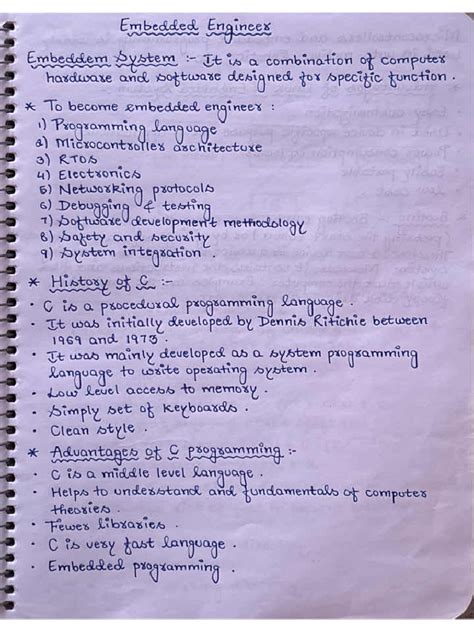 Embedded Engineer
Embeddem System :- It is a combination of computer
hardware and software designed for specific function.
* To become embedded engineer :
1) Programming language
2) Microcontroller architecture
3) RTOS
4) Electronics
5) Networking protocols
6) Debugging & testing
7) Software development methodology
8) Safety and security
9) System integration.
* History of C :-
• C is a procedural programming language.
• It was initially developed by Dennis Ritichie between
1969 and 1973.
• It was mainly developed as a system programming
language to write operating system.
• Low level access to memory.
• Simply set of keyboards.
• Clean style.
* Advantages of C programming :-
• C is a middle level language.
• Helps to understand and fundamentals of computer
theories.
• Fewer libraries.
• C is very fast language.
• Embedded programming.